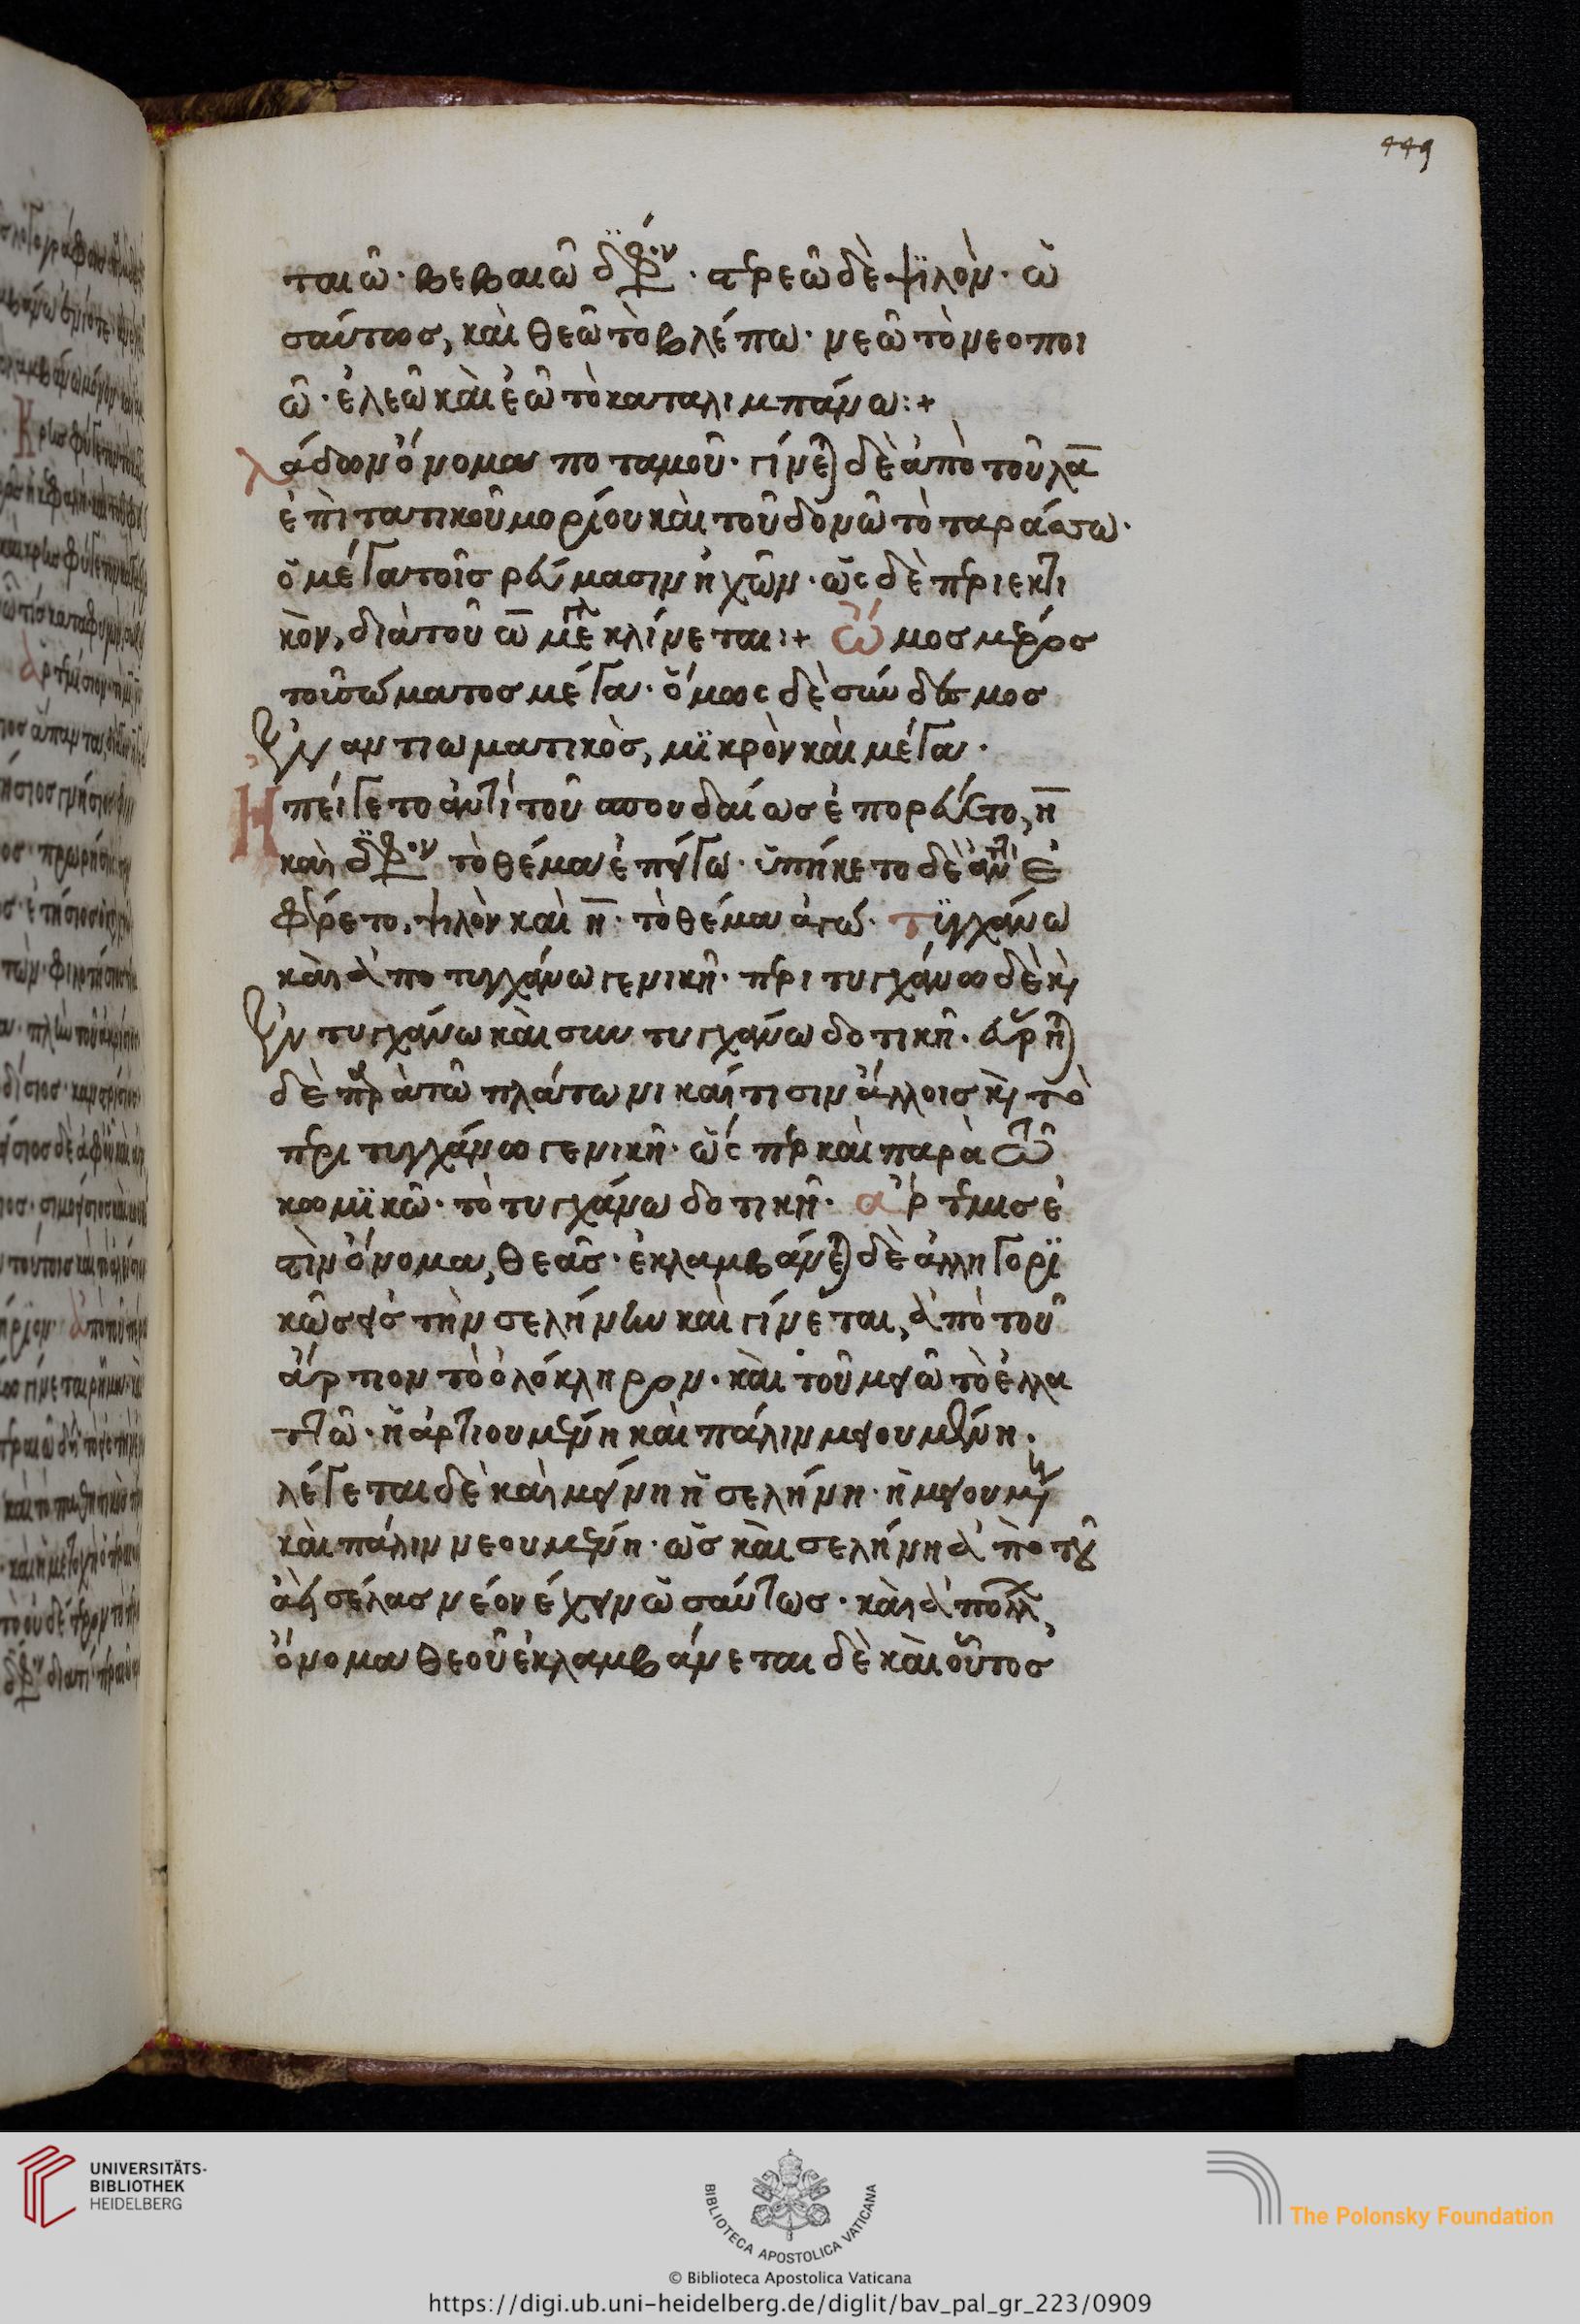 449
ταιῶ· βεβαιῶ δίφθογγον· στερεῶ δὲ ψιλὸν· ὡ
σαύτως, καὶ θεῶ τὸ βλέπω· νεῶ τὸ νεοποι
ῶ· ἐλεῶ καὶ ἐῶ τὸ καταλιμπάνω:+
λάδων ὄνομα ποταμοῦ· γίνεται δὲ ἀπὸ τοῦ λα
ἐπιτατικοῦ μορίου καὶ τοῦ δονῶ τὸ ταράσσω·
ὁ μέγα τοῖς ῥεύμασιν ἠχῶν· ὡς δὲ περιεκτι
κὸν, διὰ τοῦ ω μεγάλου κλίνεται:+ ὦμος μέρος
τοῦ σώματος μέγα· ὅμως δὲ σύνδεσμος
ἐναντιωματικὸς, μικρὸν καὶ μέγα·
Ἠπείγετο ἀντὶ τοῦ σπουδαίως ἐπορεύετο, η
καὶ δίφθογγον τὸ θέμα ἐπείγω· ὑπήγετο δὲ ἀντὶ ἐ
φέρετο, ψιλὸν καὶ η· τὸ θέμα ἄγω· Τυγχάνω
καὶ ἀποτυγχάνω γενικῇ· περιτυγχάνω δὲ καὶ
ἐντυγχάνω καὶ συντυγχάνω δοτικῇ· εὕρηται
δὲ παρὰ τῶ πλάτωνι καί τισιν ἄλλοις καὶ τὸ
περιτυγχάνω γενικῇ· ὥσπερ καὶ παρὰ τῶ
κωμικῶ· τὸ τυγχάνω δοτικῇ· ἄρτεμις ἐ
στὶν ὄνομα, θεᾶς· ἐκλαμβάνεται δὲ ἀλληγορι
κῶς εἰς τὴν σελήνην καὶ γίνεται, ἀπὸ τοῦ
ἄρτιον τὸ ὁλόκληρον· καὶ τοῦ μειῶ τὸ ἐλα
ττῶ· ἡ ἀρτιουμένη καὶ πάλιν μειουμένη·
λέγεται δὲ καὶ μείνη ἡ σελήνη· ἡ μειουμένη
καὶ πάλιν νεουμένη· ὡς καὶ σελήνη ἀπὸ τοῦ
ἀεὶ σέλας νέον ἔχειν ὡσαύτως· καὶ ἀπόλλων,
ὄνομα θεοῦ ἐκλαμβάνεται δὲ καὶ οὗτος
UNIVERSITÄTS-
BIBLIOTHEK
HEIDELBERG
BIBLIOTECA APOSTOLICA VATICANA
The Polonsky Foundation
© Biblioteca Apostolica Vaticana
https://digi.ub.uni-heidelberg.de/diglit/bav_pal_gr_223/0909